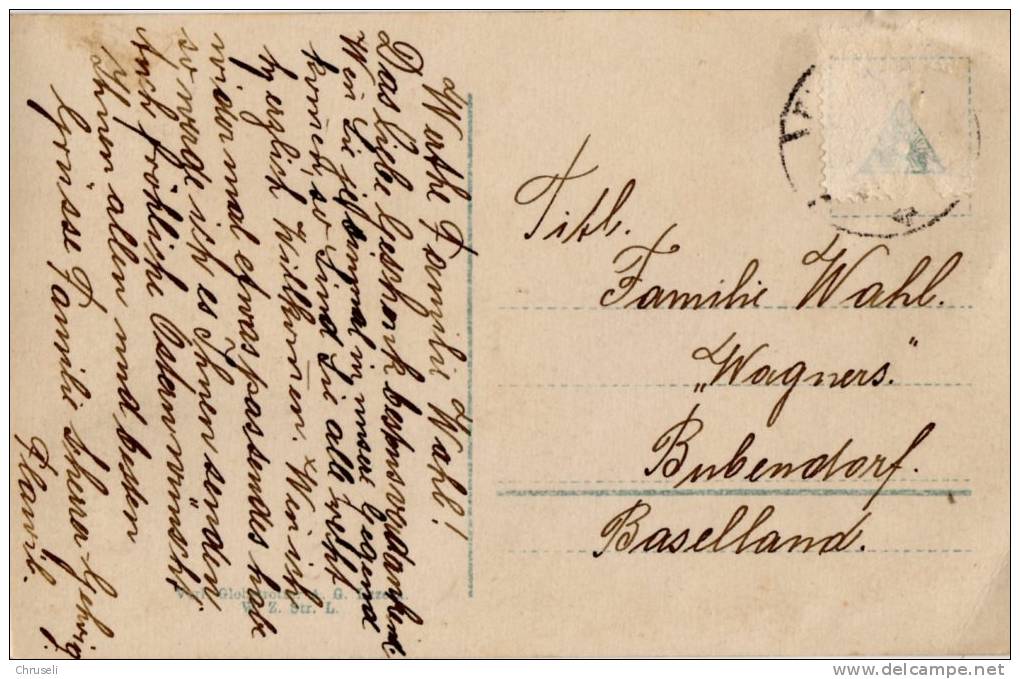 Werthe Familie Wahl!
Das liebe Geschenk bestens verdankend.
Wen Sie je einmal in unsere Gegend
komen, so sind Sie alle Zeit
herzlich Willkomen. Wen ich
wieder mal etwas passendes habe
so wage ich es Ihnen senden.
Auch fröhliche Ostern wünscht
Ihnen allen und besten
Grüsse Familie Scherrer-Gehrig
Flawil.
Titl.
Familie Wahl.
„Wagners."
Bubendorf.
Baselland.
A. G.
W. Z. Str. L.
Chruseli
delcampe.net